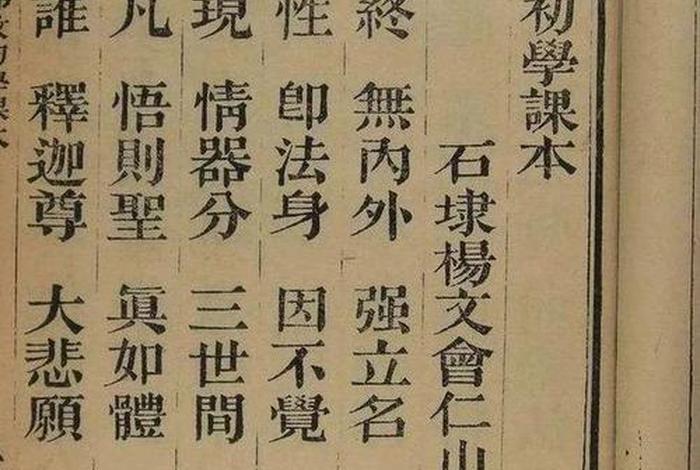 初學課本
石埭楊文會仁山
終 無內外 强立名
性 卽法身 因不覺
現 情器分 三世間
凡 悟則聖 眞如體
誰 釋迦尊 大悲願